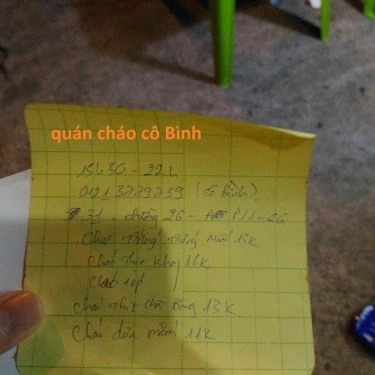 quán cháo cô Bình
15h30 - 22h
(cô Bình)
31 - đường 26 - P11 - Q6
Cháo trắng trứng muối 15K
Cháo thịt kho 16K
Cháo tép
Cháo thịt chà bông 13K
Cháo dưa mắm 11K